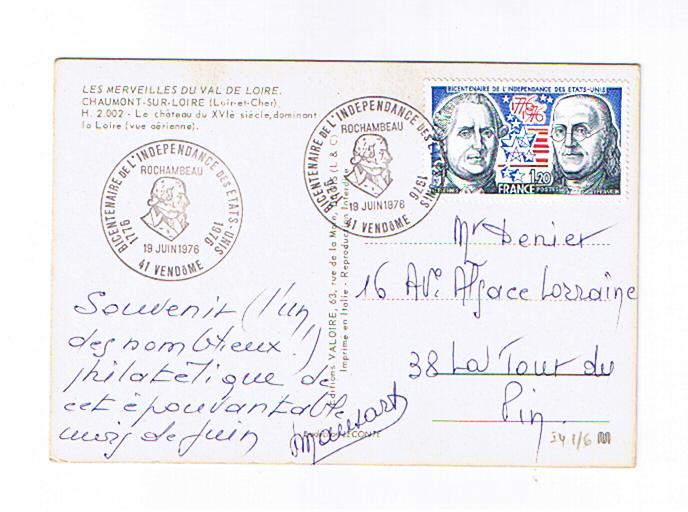 LES MERVEILLES DU VAL DE LOIRE.
CHAUMONT-SUR-LOIRE (Loir-et-Cher).
H. 2.002 - Le château du XVIè siècle, dominant
la Loire (vue aérienne).
BICENTENAIRE DE L'INDEPENDANCE DES ETATS-UNIS
ROCHAMBEAU
1776 1976
19 JUIN 1976
41 VENDOME
BICENTENAIRE DE L'INDEPENDANCE DES ETATS-UNIS
ROCHAMBEAU
1976
19 JUIN 1976
41 VENDOME
BICENTENAIRE DE L'INDEPENDANCE DES ETATS-UNIS
1776
1976
1,20
FRANCE POSTES
Editions VALOIRE, 63, rue de la
Imprimé en Italie - Reproduction Interdite
Souvenir (l'un
des nombreux!)
philatélique de
cet épouvantable
mois de juin
Mr Denier
16 Ave Alsace Lorraine
38 La Tour du
Pin.